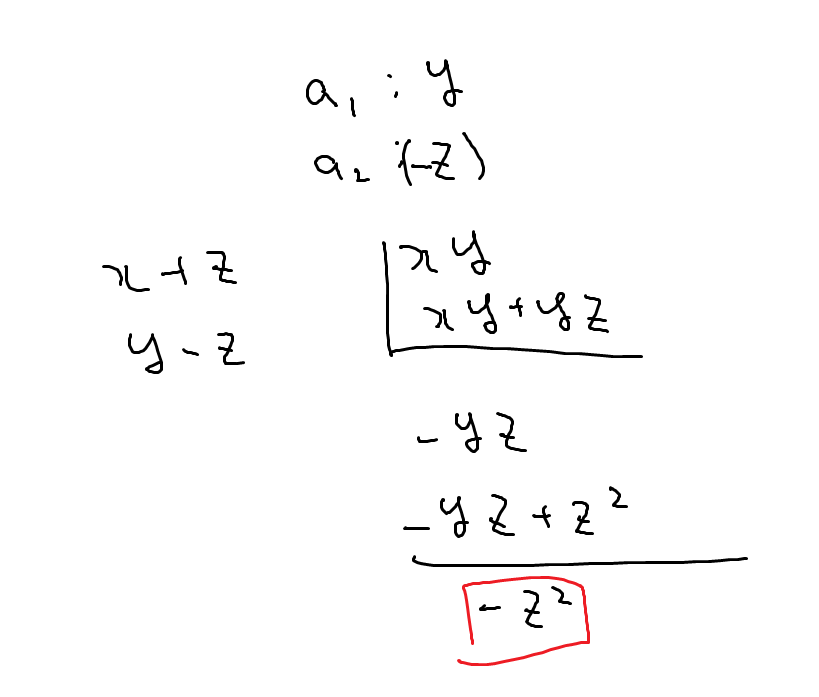 a₁ : y
a₂ : (-z)
x + z
y - z
xy
xy + yz
- yz
- yz + z²
- z²